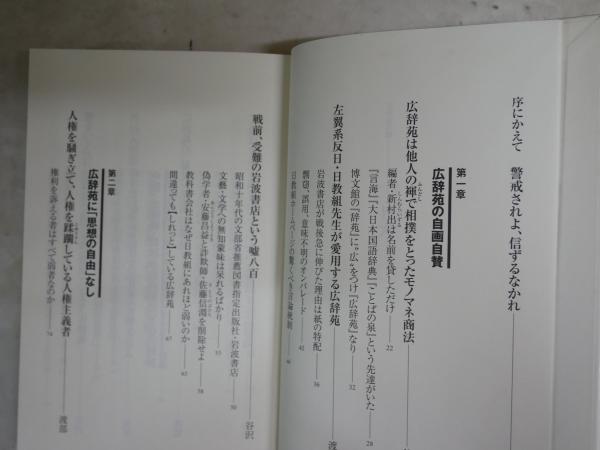 序にかえて 警戒されよ、信ずるなかれ
第一章
広辞苑の自画自賛
広辞苑は他人の褌で相撲をとったモノマネ商法
編者・新村出は名前を貸しただけ 22
『言海』『大日本国語辞典』『ことばの泉』という先達がいた 28
博文館の『辞苑』に“広”をつけ『広辞苑』なり 32
左翼系反日・日教組先生が愛用する広辞苑
渡
岩波書店が戦後急に伸びた理由は紙の特配 36
剽窃、誤用、意味不明のオンパレード 41
日教組ホームページの驚くべき言論統制
戦前、受難の岩波書店という嘘八百
谷沢
昭和十年代の文部省推薦図書指定出版社・岩波書店 50
文藝・文学への無知蒙昧は呆れるばかり 55
偽学者・安藤昌益と詐欺師・佐藤信淵を削除せよ 58
教科書会社はなぜ日教組にあれほど弱いのか 65
間違ってても【しれっと】している広辞苑 67
第二章
広辞苑に「思想の自由」なし
人権を騒ぎ立て、人権を蹂躙している人権主義者
渡部
権利を訴える者はすべて弱者なのか 74